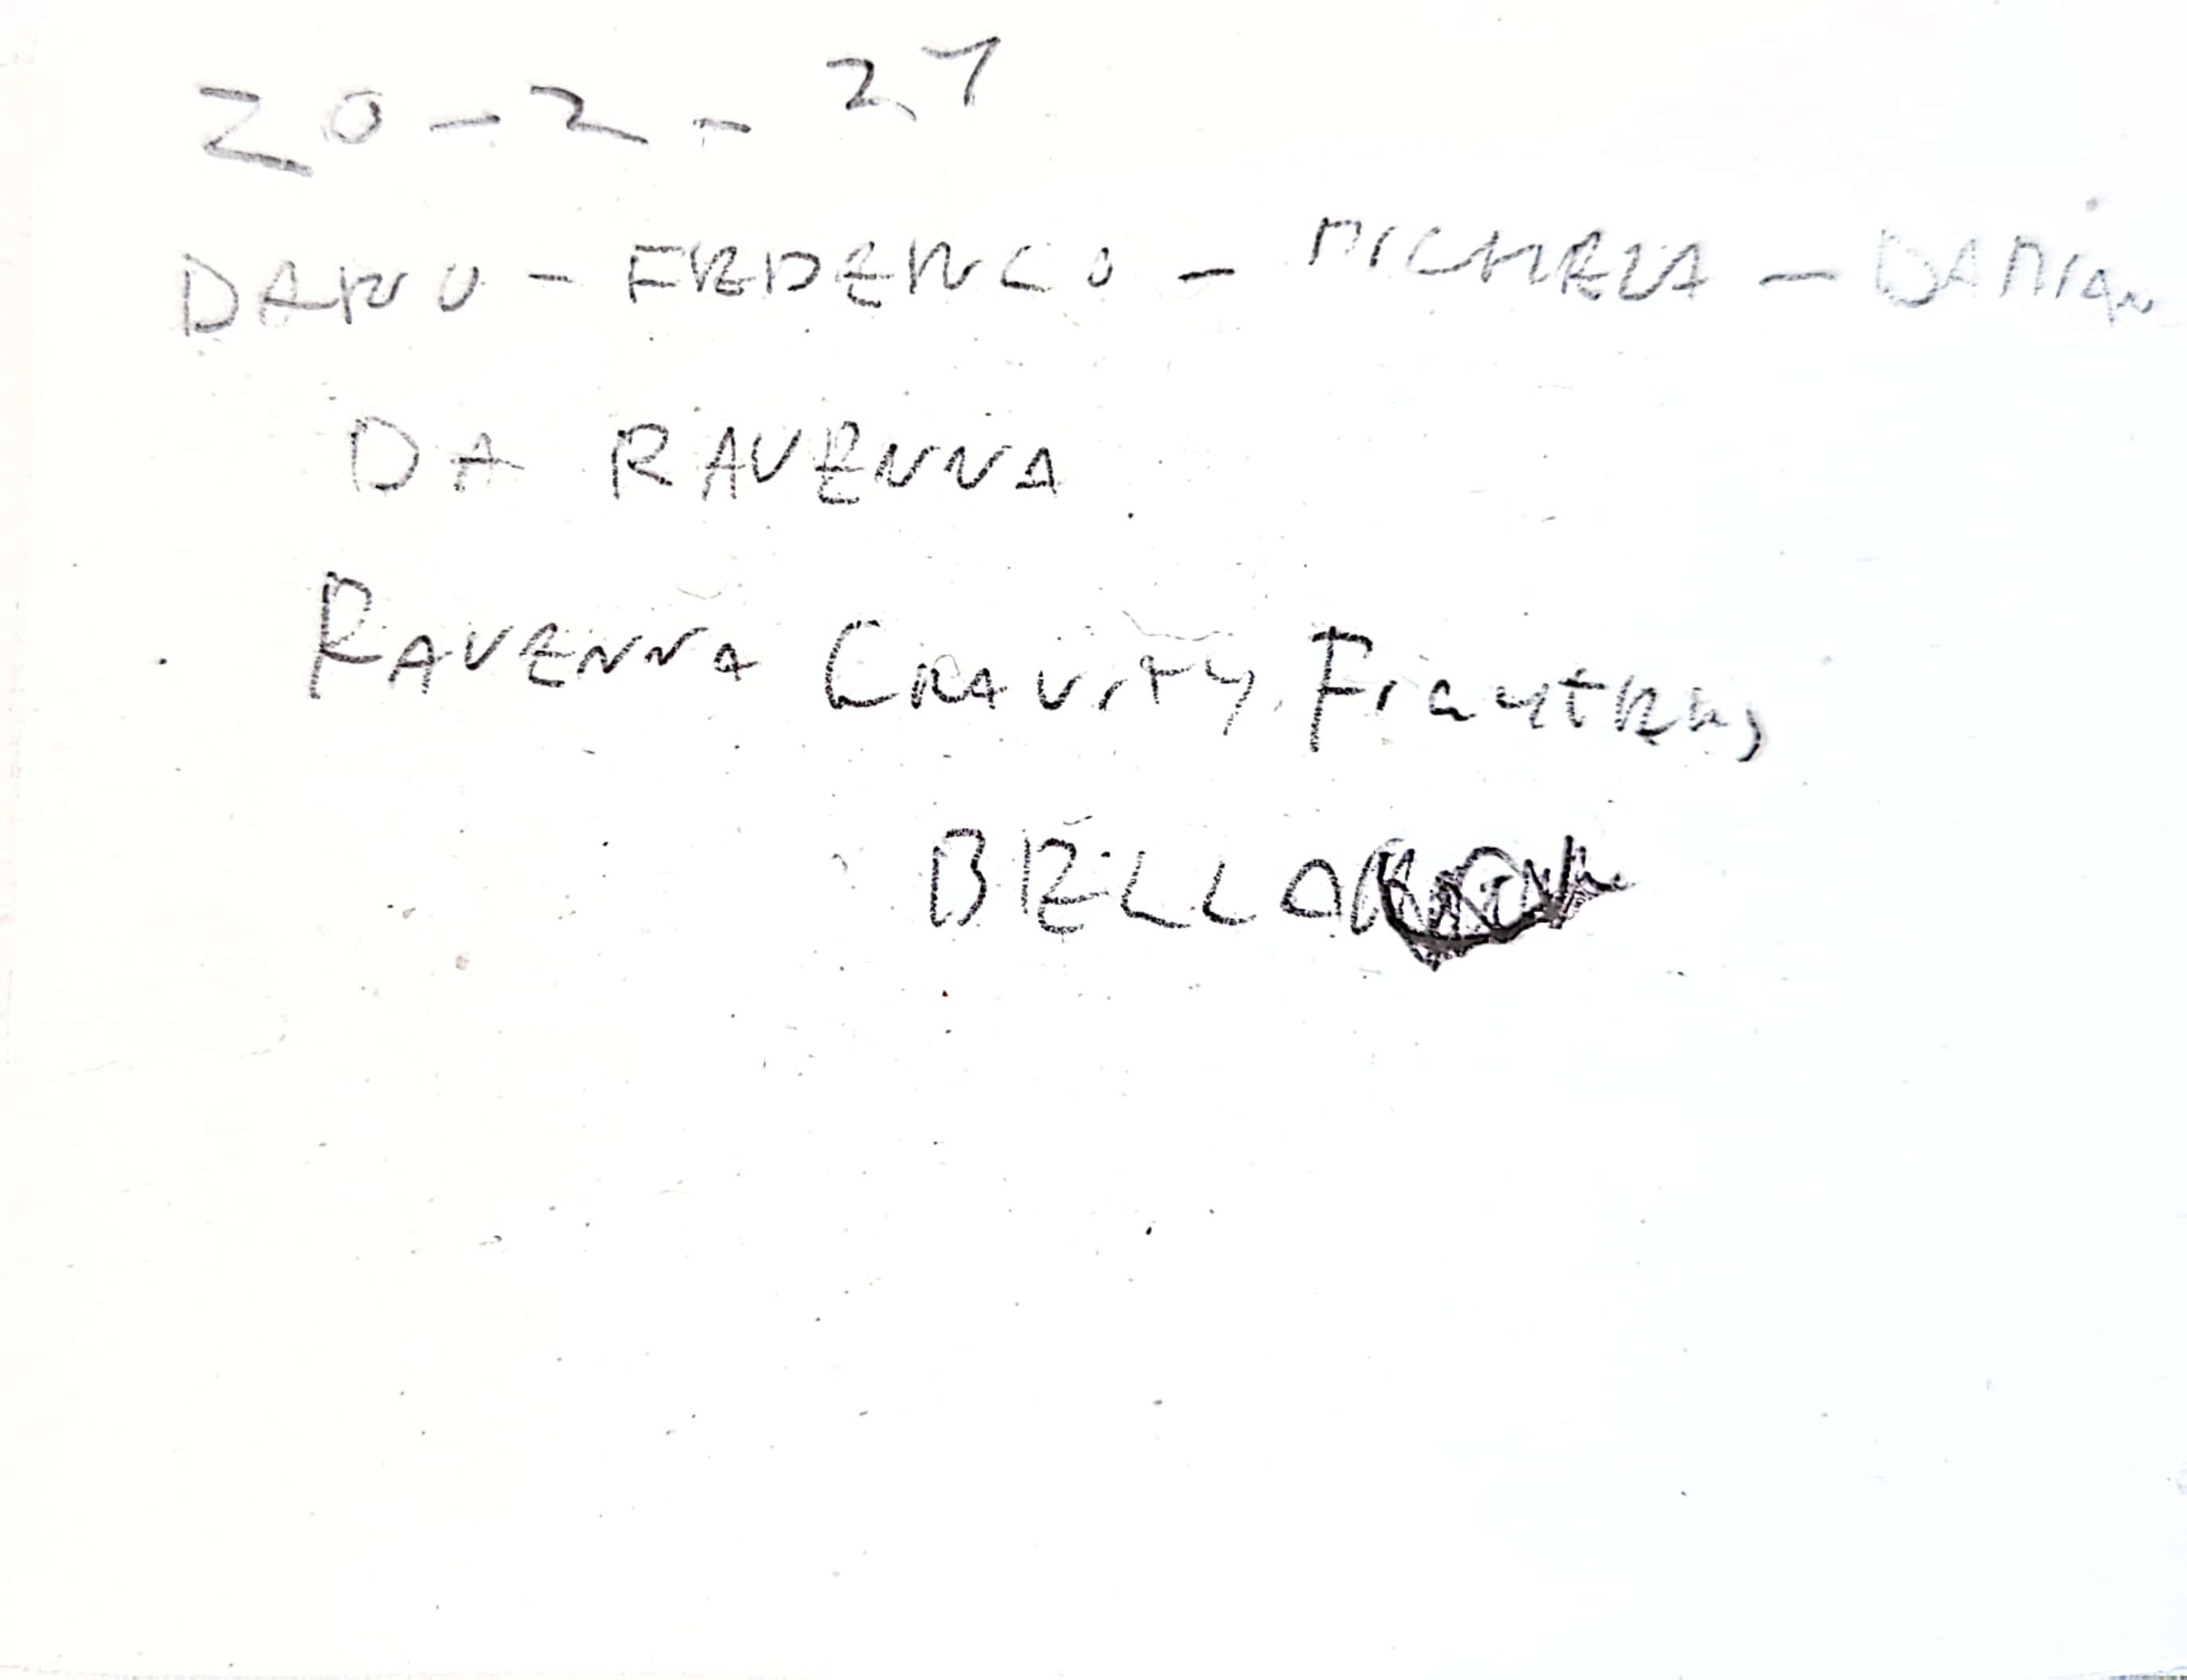 20-2-27
DARIO - FEDERICO - MICHELA - DAMIAN
DA RAVENNA
RAVENNA GRAVITY FIGHTERS
BELLA